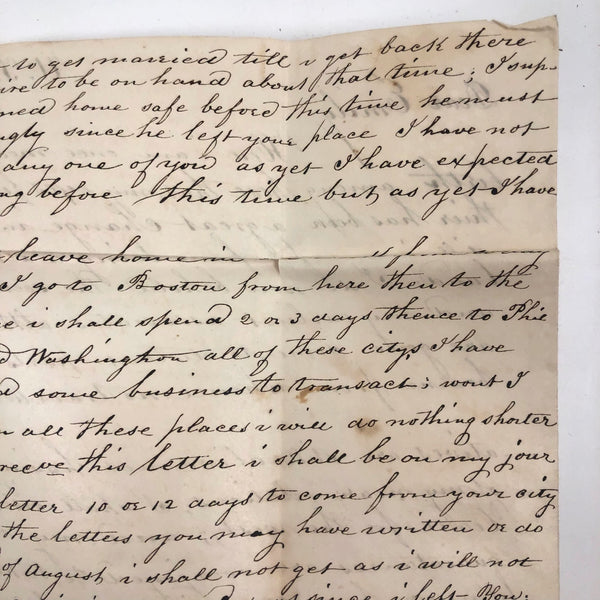 to get married till i get back there
to be on hand about that time; I sup-
home safe before this time he must
since he left your place I have not
any one of you as yet I have expected
before this time but as yet I have
leave home in
I go to Boston from here then to the
i shall spend 2 or 3 days thence to Phie
Washington all of these citys I have
some business to transact; wont I
all these places i will do nothing shorter
receve this letter i shall be on my jour
letter 10 or 12 days to come from your city
the letters you may have written or do
of August i shall not get as i will not
since i left You.